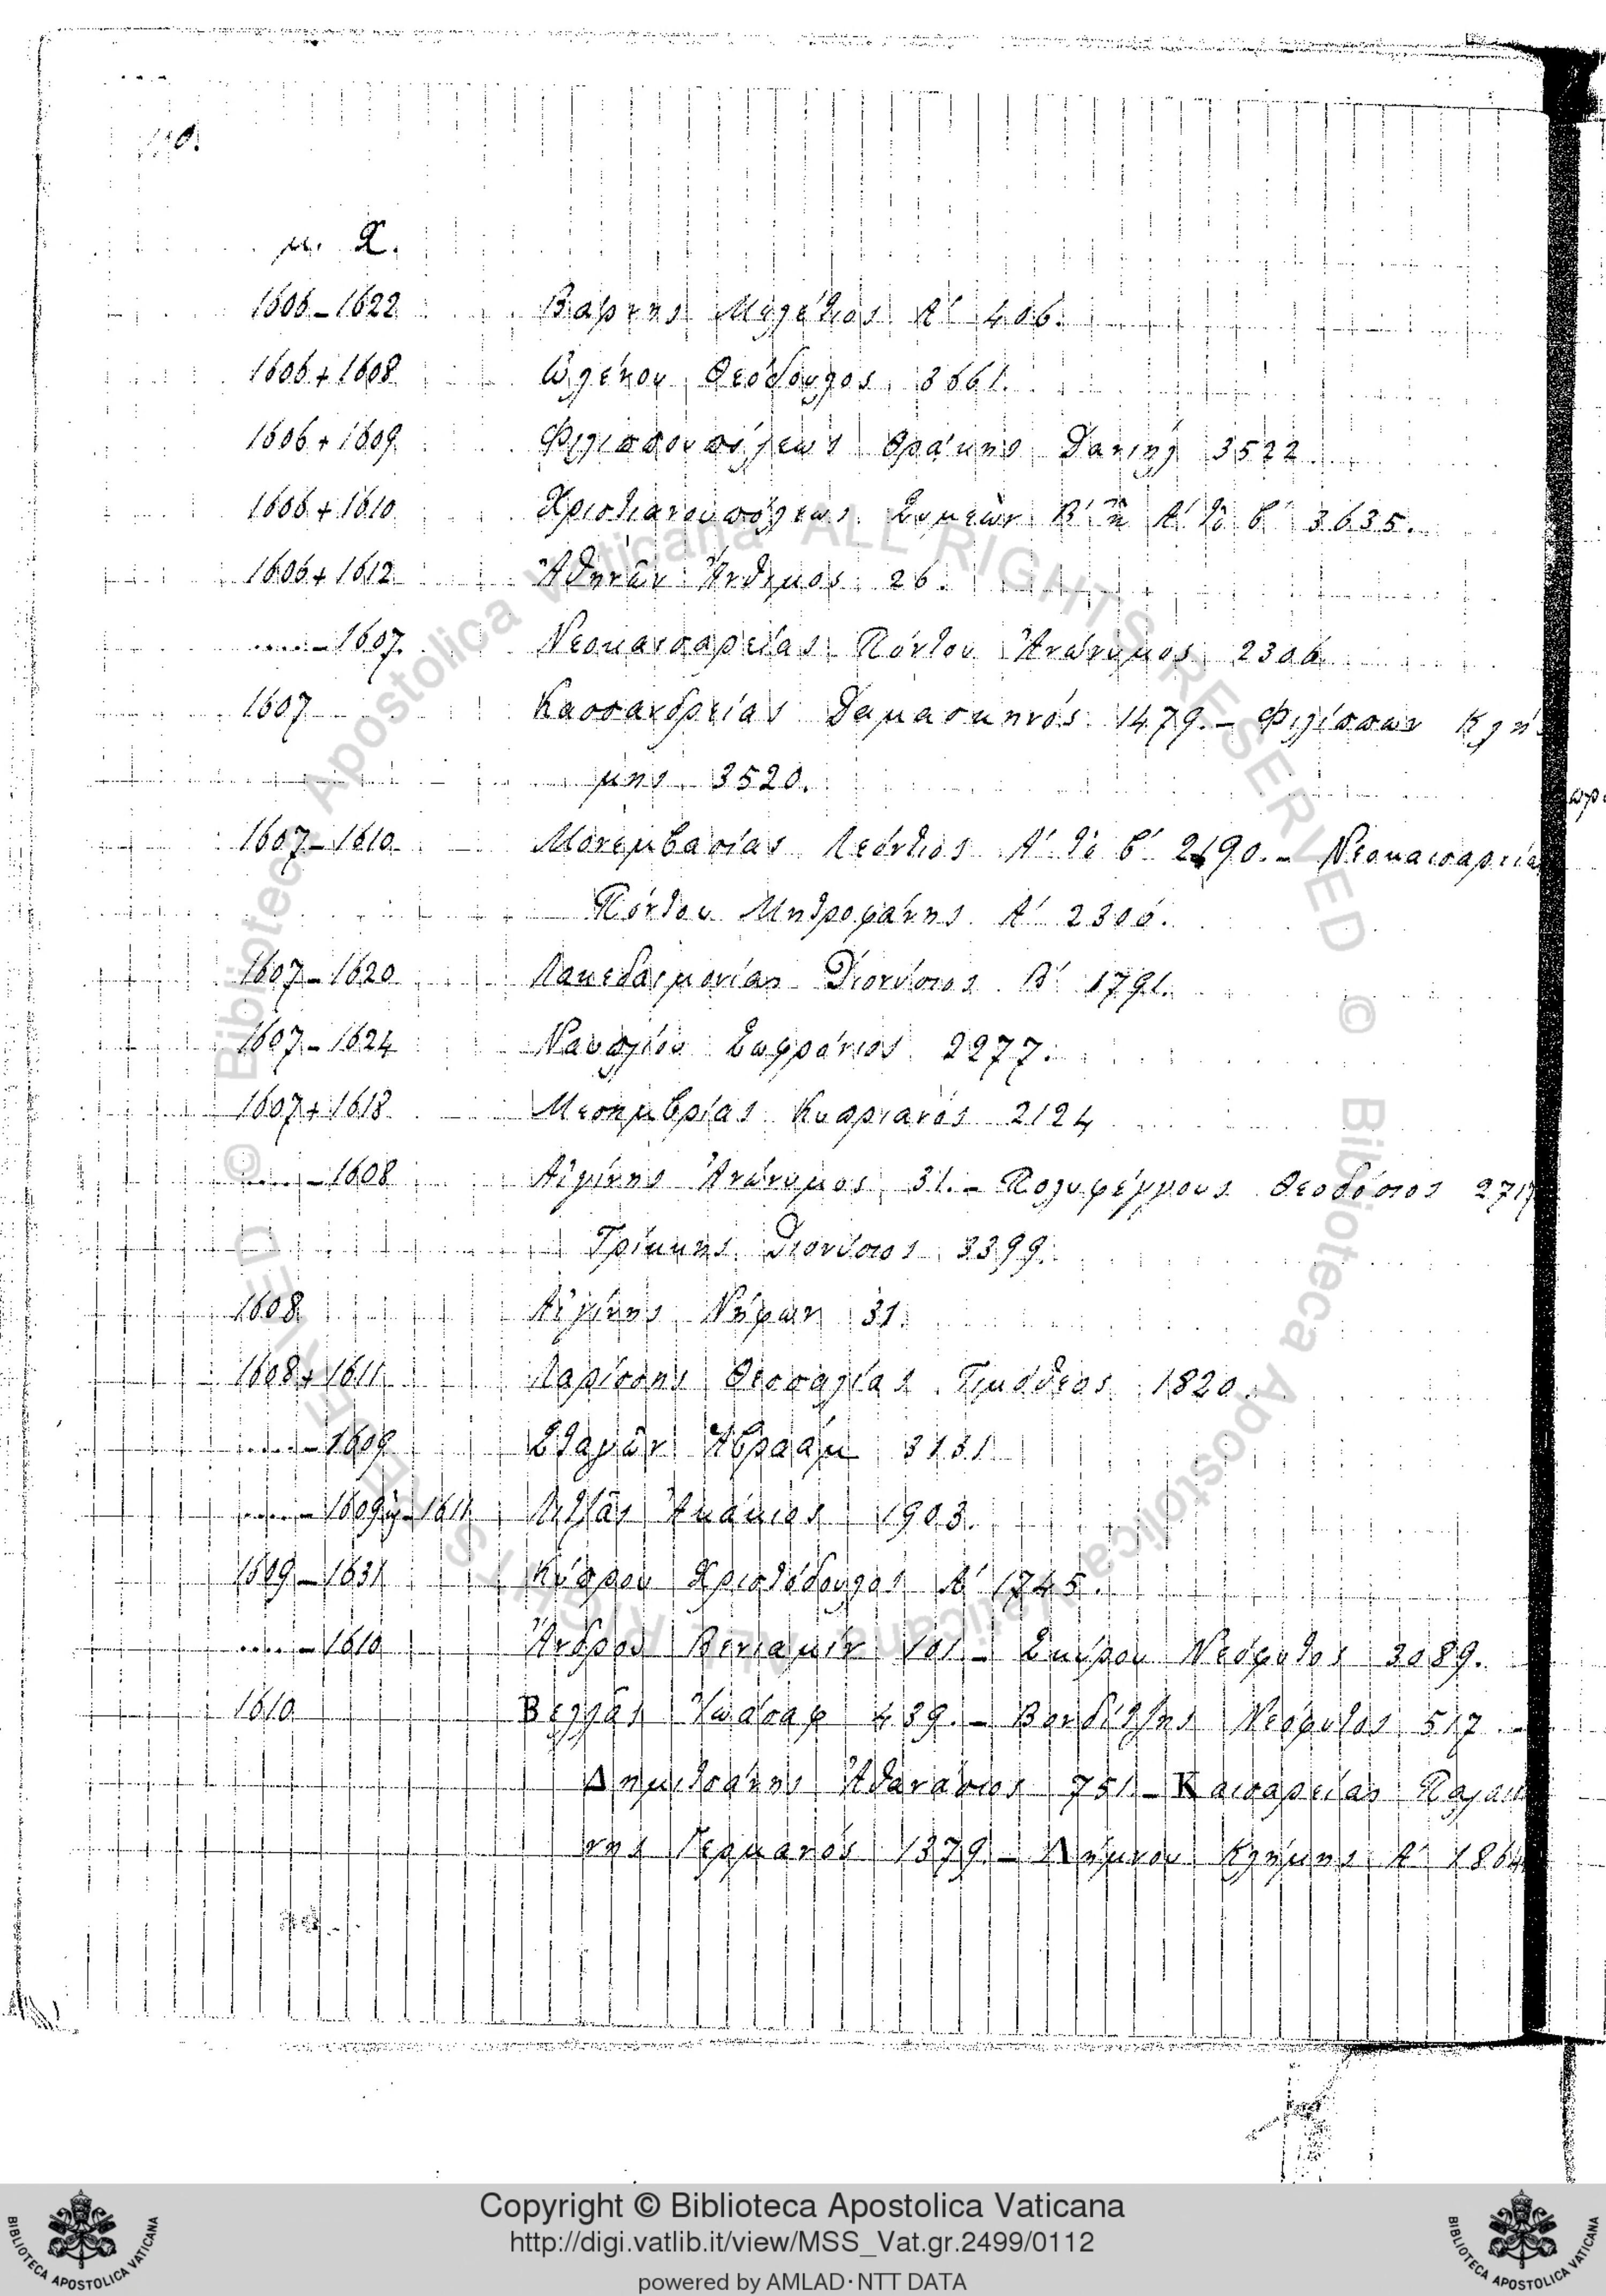 110.
μ. Χ.
1606-1622 Βάρνης Μεγέθιος Α' 406.
1606+1608 Ὠλένου Θεόδουλος 3861.
1606+1609 Φιλιππουπόλεως Θρᾴκης Δανιὴλ 3522.
1606+1610 Χριστιανουπόλεως Συμεὼν Β' ἢ Α' τὸ β' 3635.
1606+1612 Ἀθηνῶν Ἄνθιμος 26.
......-1607. Νεοκαισαρείας Πόντου Ἀνώνυμος 2306.
1607 Κασσανδρείας Δαμασκηνός 1479.- Φιλίππων Κλή-
μης 3520.
1607-1610 Μονεμβασίας Λεόντιος Α' τὸ β' 2190.- Νεοκαισαρείας
Πόντου Μητροφάνης Α' 2306.
1607-1620 Λακεδαιμονίας Διονύσιος Β' 1791.
1607-1624 Ναυπλίου Σωφρόνιος 2277.
1607+1618 Μεσημβρίας Κυπριανός 2124
......-1608 Αἰγίνης Ἀνώνυμος 31.- Πολυφέγγους Θεοδόσιος 271
Τρίκκης Διονύσιος 3399.
1608 Αἰγίνης Νήφων 31.
1608+1611 Λαρίσσης Θεσσαλίας Τιμόθεος 1820.
......-1609 Σταγῶν Ἀβραὰμ 3131.
......-1609 ἢ -1611 Λιτζᾶς Ἀκάκιος 1903.
1609-1631 Κύπρου Χριστόδουλος Α' 1745.
......-1610 Ἄνδρου Βενιαμὶν 101.- Σκύρου Νεόφυτος 3089.
1610 Βελλᾶς Ἰωάσαφ 439.- Βονδίτζης Νεόφυτος 517.-
Δημητσάνης Ἀθανάσιος 751.- Καισαρείας Παλαιστί-
νης Γερμανός 1379.- Λήμνου Κλήμης Α' 1864
Copyright © Biblioteca Apostolica Vaticana
http://digi.vatlib.it/view/MSS_Vat.gr.2499/0112
powered by AMLAD·NTT DATA